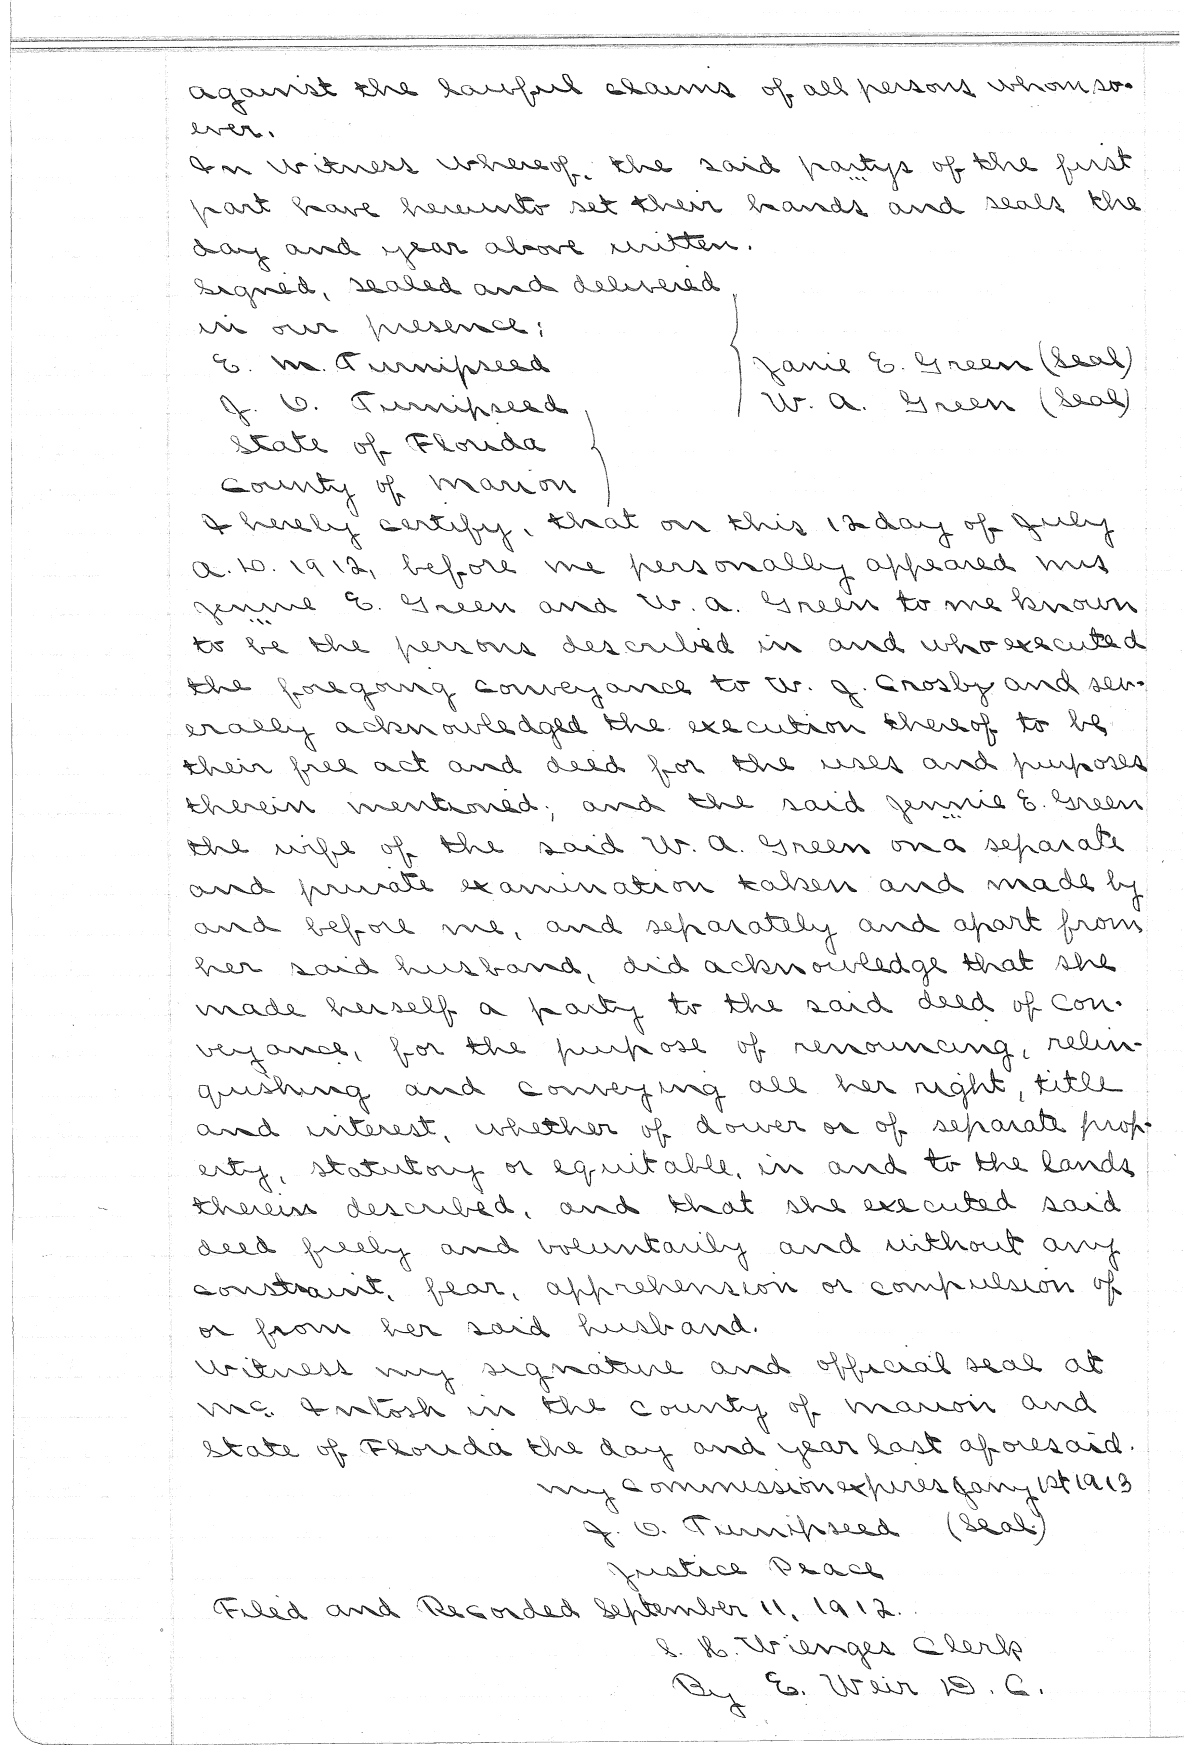 against the lawful claims of all persons whomso-
ever.
In Witness Whereof, the said partys of the first
part have hereunto set their hands and seals the
day and year above written.
Signed, sealed and delivered
in our presence:
E. M. Turnipseed
Janie E. Green (Seal)
J. O. Turnipseed
W. A. Green (Seal)
State of Florida
County of Marion
I hereby certify, that on this 12 day of July
A.D. 1912, before me personally appeared Mrs
Jennie E. Green and W. A. Green to me known
to be the persons described in and who executed
the foregoing conveyance to W. J. Crosby and sev-
erally acknowledged the execution thereof to be
their free act and deed for the uses and purposes
therein mentioned; and the said Jennie E. Green
the wife of the said W. A. Green on a separate
and private examination taken and made by
and before me, and separately and apart from
her said husband, did acknowledge that she
made herself a party to the said deed of con-
veyance, for the purpose of renouncing, relin-
qushing and conveying all her right, title
and interest, whether of dower or of separate prop-
erty, statutory or equitable, in and to the lands
therein described, and that she executed said
deed freely and voluntarily and without any
constraint, fear, apprehension or compulsion of
or from her said husband.
Witness my signature and official seal at
Mc. Intosh in the County of Marion and
State of Florida the day and year last aforesaid.
My Commission expires Jany 1st 1913
J. O. Turnipseed (Seal)
Justice Peace
Filed and Recorded September 11, 1912.
S. H. Wienges Clerk
By E. Weir D. C.